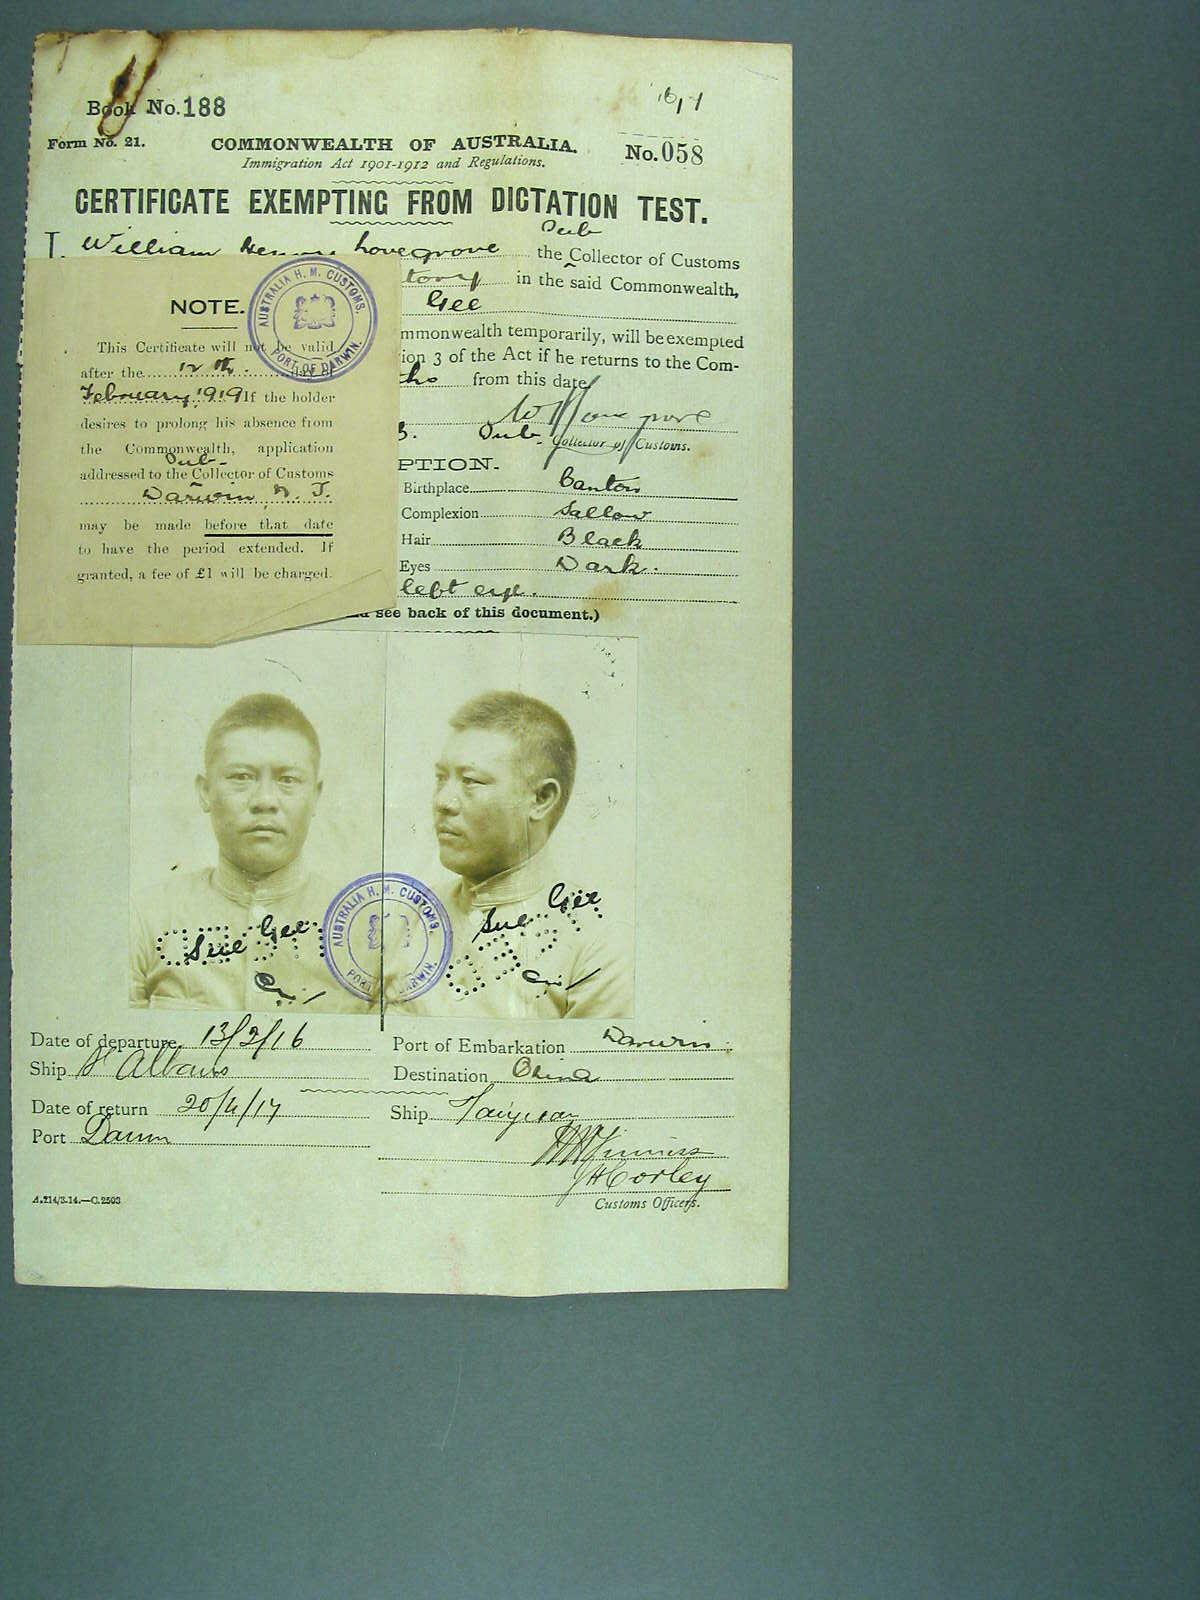 Book No. 188
16/1
Form No. 21.
COMMONWEALTH OF AUSTRALIA.
No. 058
Immigration Act 1901-1912 and Regulations.
CERTIFICATE EXEMPTING FROM DICTATION TEST.
I, William Henry Lovegrove Sub the Collector of Customs
in the said Commonwealth,
Gee
mmonwealth temporarily, will be exempted
ion 3 of the Act if he returns to the Com-
ths from this date
Sub. Collector of Customs.
PTION.
Birthplace Canton
Complexion Sallow
Hair Black
Eyes Dark.
left eye.
see back of this document.)
NOTE.
This Certificate will not be valid
after the 12th. day of
February, 1919 If the holder
desires to prolong his absence from
the Commonwealth, application
Sub-
addressed to the Collector of Customs
Darwin, N.T.
may be made before that date
to have the period extended. If
granted, a fee of £1 will be charged.
AUSTRALIA H. M. CUSTOMS.
PORT OF DARWIN.
Sue Gee
Sue Gee
AUSTRALIA H. M. CUSTOMS.
Date of departure 13/2/16
Port of Embarkation Darwin
Ship St Albans
Destination China
Date of return 20/4/17
Ship Taiyuan
Port Darwin
JHCorley
Customs Officers.
A.214/3.14.—C.2503